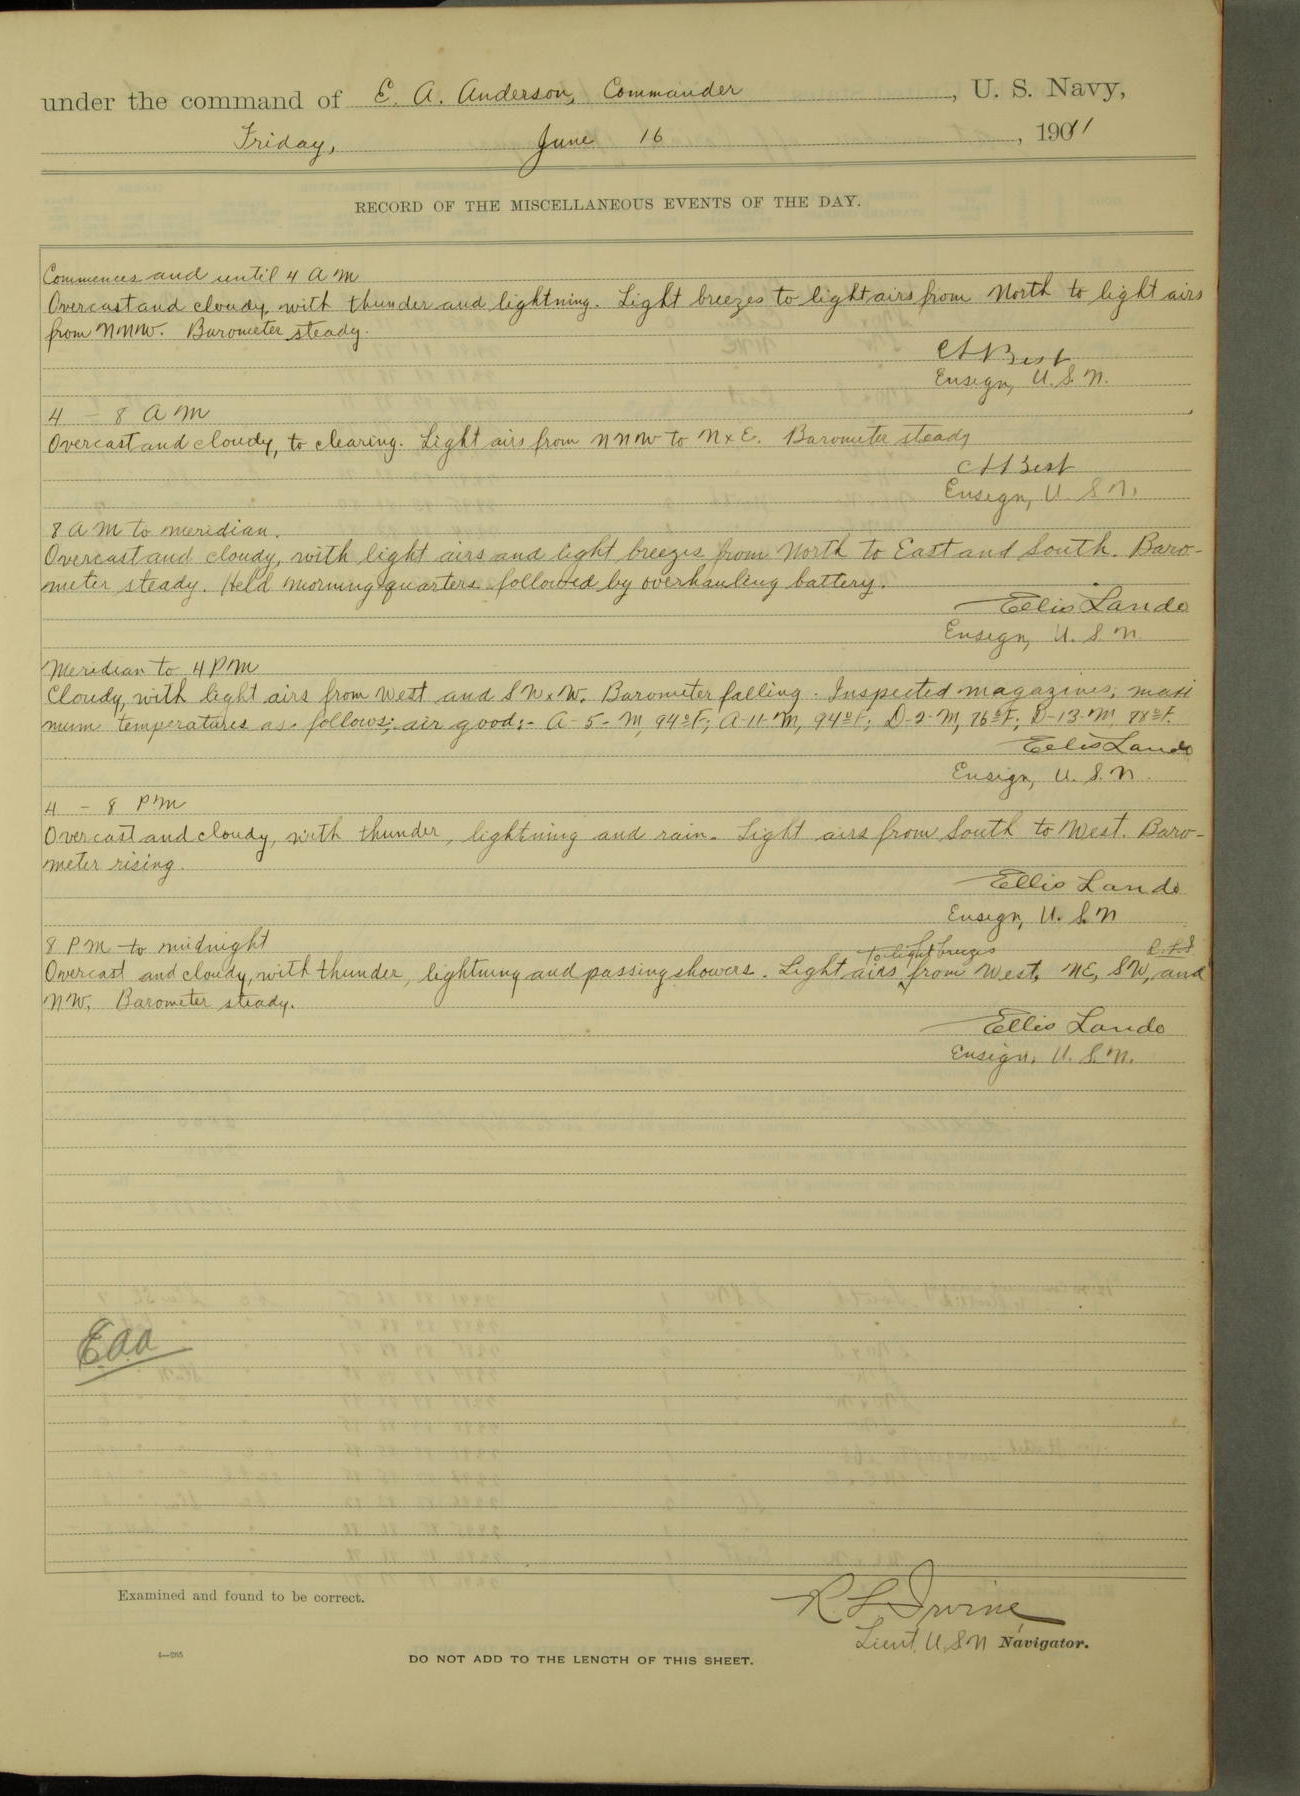 under the command of E. A. Anderson, Commander, U. S. Navy,
Friday, June 16, 1911
RECORD OF THE MISCELLANEOUS EVENTS OF THE DAY.
Commences and until 4 A M
Overcast and cloudy, with thunder and lightning. Light breezes to light airs from North to light airs
from NNW. Barometer steady.
C H Best
Ensign, U. S. N.
4 - 8 A M
Overcast and cloudy, to clearing. Light airs from NNW to N x E. Barometer steady
C H Best
Ensign, U. S. N.
8 A M to meridian.
Overcast and cloudy, with light airs and light breezes from North to East and South. Baro-
meter steady. Held morning quarters followed by overhauling battery.
Ellis Lando
Ensign, U. S. N.
Meridian to 4 PM
Cloudy, with light airs from West and SW x W. Barometer falling. Inspected magazines; maxi
mum temperatures as follows; air good:- A-5-M, 94° F; A-11-M, 94° F; D-2-M, 76° F; D-13-M, 78° F.
Ellis Lando
Ensign, U. S. N.
4 - 8 PM
Overcast and cloudy, with thunder, lightning and rain. Light airs from South to West. Baro-
meter rising.
Ellis Lando
Ensign, U. S. N
8 PM to midnight
to light breezes
Overcast and cloudy, with thunder, lightning and passing showers. Light airs from West, NE, SW, and
NW. Barometer steady.
Ellis Lando
Ensign, U. S. N.
E.A.A
Examined and found to be correct.
R. L. Irvine
Lieut, U. S. N Navigator.
4—265
DO NOT ADD TO THE LENGTH OF THIS SHEET.